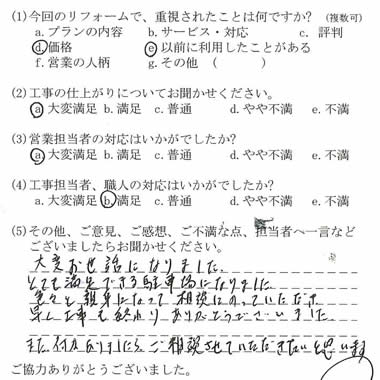 (1)今回のリフォームで、重視されたことは何ですか? (複数可)
a.プランの内容 b.サービス・対応 c. 評判
d.価格 e.以前に利用したことがある
f.営業の人柄 g.その他 ( )
(2)工事の仕上がりについてお聞かせください。
a.大変満足 b.満足 c.普通 d.やや不満 e.不満
(3)営業担当者の対応はいかがでしたか?
a.大変満足 b.満足 c.普通 d.やや不満 e.不満
(4)工事担当者、職人の対応はいかがでしたか?
a.大変満足 b.満足 c.普通 d.やや不満 e.不満
(5)その他、ご意見、ご感想、ご不満な点、担当者へ一言など
ございましたらお聞かせください。
大変お世話になりました。
とても満足できる駐車場になりました
色々と親身になって相談にのっていただき
早く工事も終わり、ありがとうございました
また何かありましたら、ご相談させていただきたいと思います
ご協力ありがとうございました。